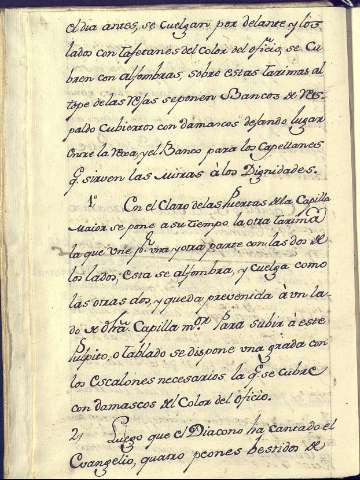 el dia antes, se cuelgan por delante y los
lados con tafetanes del color del oficio, se cu
bren con alfombras, sobre estas tarimas al
tope de las rejas se ponen Bancos de Res-
paldo Cubiertos con damascos dejando lugar
entre la rexa, y el Banco para los Capellanes
q.e sirven las Mitras à los Dignidades.
1.º En el Claro de las Puertas de la Capilla
Maior se pone a su tiempo la otra tarima
la que vne p.r vna y otra parte con las dos de
los lados, esta se alfombra, y cuelga como
las otras dos, y queda prevenida à vn la-
do de dha Capilla m.or Para subir à este
Pulpito, o tablado se dispone vna grada con
los Escalones necesarios la q.e se cubre
con damascos del Color del oficio.
2, Luego que el Diacono ha cantado el
Evangelio, quatro peones bestidos de